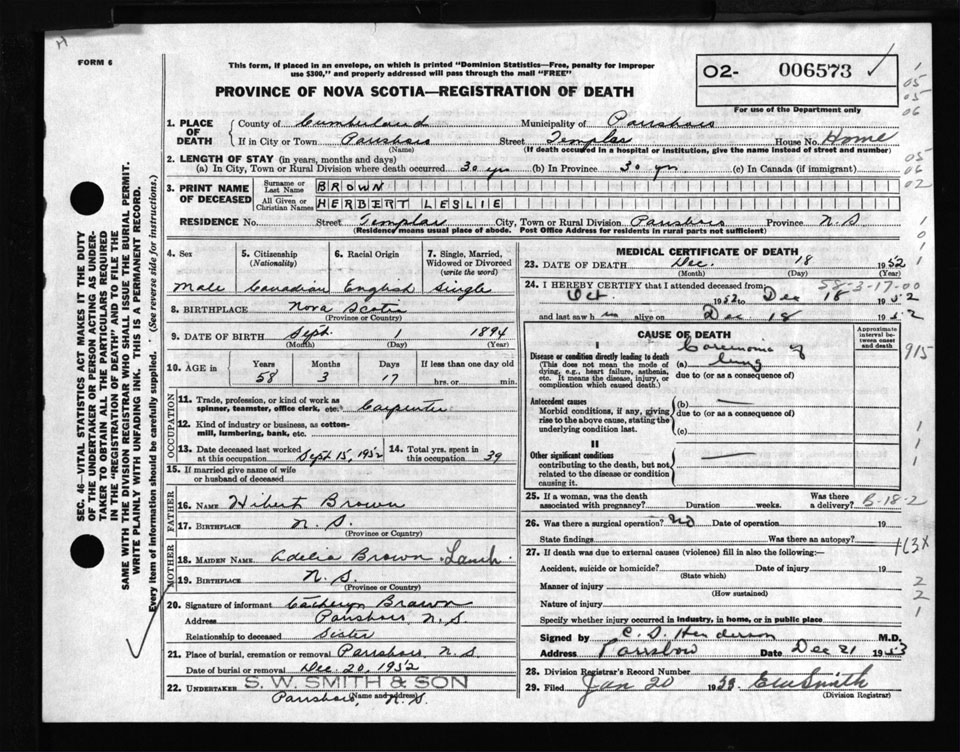 H
FORM 6
This form, if placed in an envelope, on which is printed "Dominion Statistics—Free, penalty for improper
use $300," and properly addressed will pass through the mail "FREE"
PROVINCE OF NOVA SCOTIA—REGISTRATION OF DEATH
02- 006573
For use of the Department only
1. PLACE OF DEATH
County of Cumberland Municipality of Parrsboro
If in City or Town Parrsboro Street Templar House No. Home
(Name) (If death occurred in a hospital or institution, give the name instead of street and number)
2. LENGTH OF STAY (in years, months and days)
(a) In City, Town or Rural Division where death occurred 30 yrs (b) In Province 30 yrs (c) In Canada (if immigrant)
3. PRINT NAME OF DECEASED
Surname or Last Name BROWN
All Given or Christian Names HERBERT LESLIE
RESIDENCE No. Street Templar City, Town or Rural Division Parrsboro Province N.S
(Residence means usual place of abode. Post Office Address for residents in rural parts not sufficient)
4. Sex
Male
5. Citizenship (Nationality)
Canadian
6. Racial Origin
English
7. Single, Married, Widowed or Divorced (write the word)
Single
8. BIRTHPLACE Nova Scotia
(Province or Country)
9. DATE OF BIRTH Sept. 1 1894
(Month) (Day) (Year)
10. AGE in Years Months Days If less than one day old
58 3 17 hrs. or min.
OCCUPATION
11. Trade, profession, or kind of work as
spinner, teamster, office clerk, etc. Carpenter
12. Kind of industry or business, as cotton-
mill, lumbering, bank, etc.
13. Date deceased last worked
at this occupation Sept 15, 1952
14. Total yrs. spent in
this occupation 39
15. If married give name of wife
or husband of deceased
FATHER
16. NAME Hibert Brown
17. BIRTHPLACE N.S.
(Province or Country)
MOTHER
18. MAIDEN NAME Adelia Brown Lamb.
19. BIRTHPLACE N.S.
(Province or Country)
20. Signature of informant Catheryn Brown
Address Parrsboro, N.S.
Relationship to deceased Sister
21. Place of burial, cremation or removal Parrsboro, N.S.
Date of burial or removal Dec. 20, 1952
22. UNDERTAKER S. W. SMITH & SON
(Name and address)
Parrsboro, N.S.
MEDICAL CERTIFICATE OF DEATH
23. DATE OF DEATH Dec. 18 1952
(Month) (Day) (Year)
24. I HEREBY CERTIFY that I attended deceased from: 58-3-17-00
Oct 1952 to Dec 18 1952
and last saw h im alive on Dec 18 1952
CAUSE OF DEATH
Approximate interval between onset and death
I
Disease or condition directly leading to death
(This does not mean the mode of
dying, e.g., heart failure, asthenia,
etc. It means the disease, injury, or
complication which caused death.)
(a) Carcinoma of lung
due to (or as a consequence of)
Antecedent causes
Morbid conditions, if any, giving
rise to the above cause, stating the
underlying condition last.
(b) —
due to (or as a consequence of)
(c)
II
Other significant conditions
contributing to the death, but not
related to the disease or condition
causing it.
25. If a woman, was the death
associated with pregnancy? Duration weeks. Was there a delivery? B-18-2
26. Was there a surgical operation? No Date of operation 19
State findings Was there an autopsy?
27. If death was due to external causes (violence) fill in also the following:—
Accident, suicide or homicide? Date of injury 19
(State which)
Manner of injury
(How sustained)
Nature of injury
Specify whether injury occurred in industry, in home, or in public place
Signed by C. S. Henderson M.D.
Address Parrsboro Date Dec 21 1953
28. Division Registrar's Record Number
29. Filed Jan 20 1953 Smith
(Division Registrar)
SEC. 46—VITAL STATISTICS ACT MAKES IT THE DUTY
OF THE UNDERTAKER OR PERSON ACTING AS UNDER-
TAKER TO OBTAIN ALL THE PARTICULARS REQUIRED
IN THE "REGISTRATION OF DEATH" AND TO FILE THE
SAME WITH THE DIVISION REGISTRAR WHO SHALL ISSUE THE BURIAL PERMIT.
WRITE PLAINLY WITH UNFADING INK. THIS IS A PERMANENT RECORD.
Every item of information should be carefully supplied. (See reverse side for instructions.)
1
05
05
06
05
06
02
1
0
1
915
1
1
1
163X
2
2
1